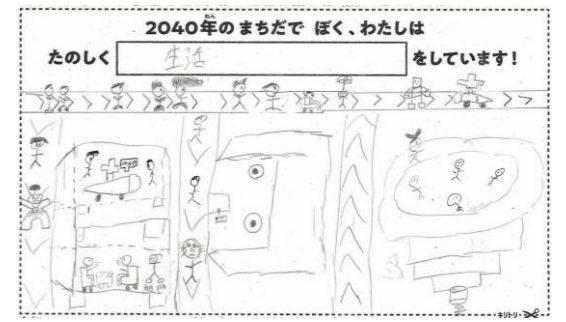 2040年のまちだで ぼく、わたしは
ねん
たのしく 生活 をしています!
キリトリ